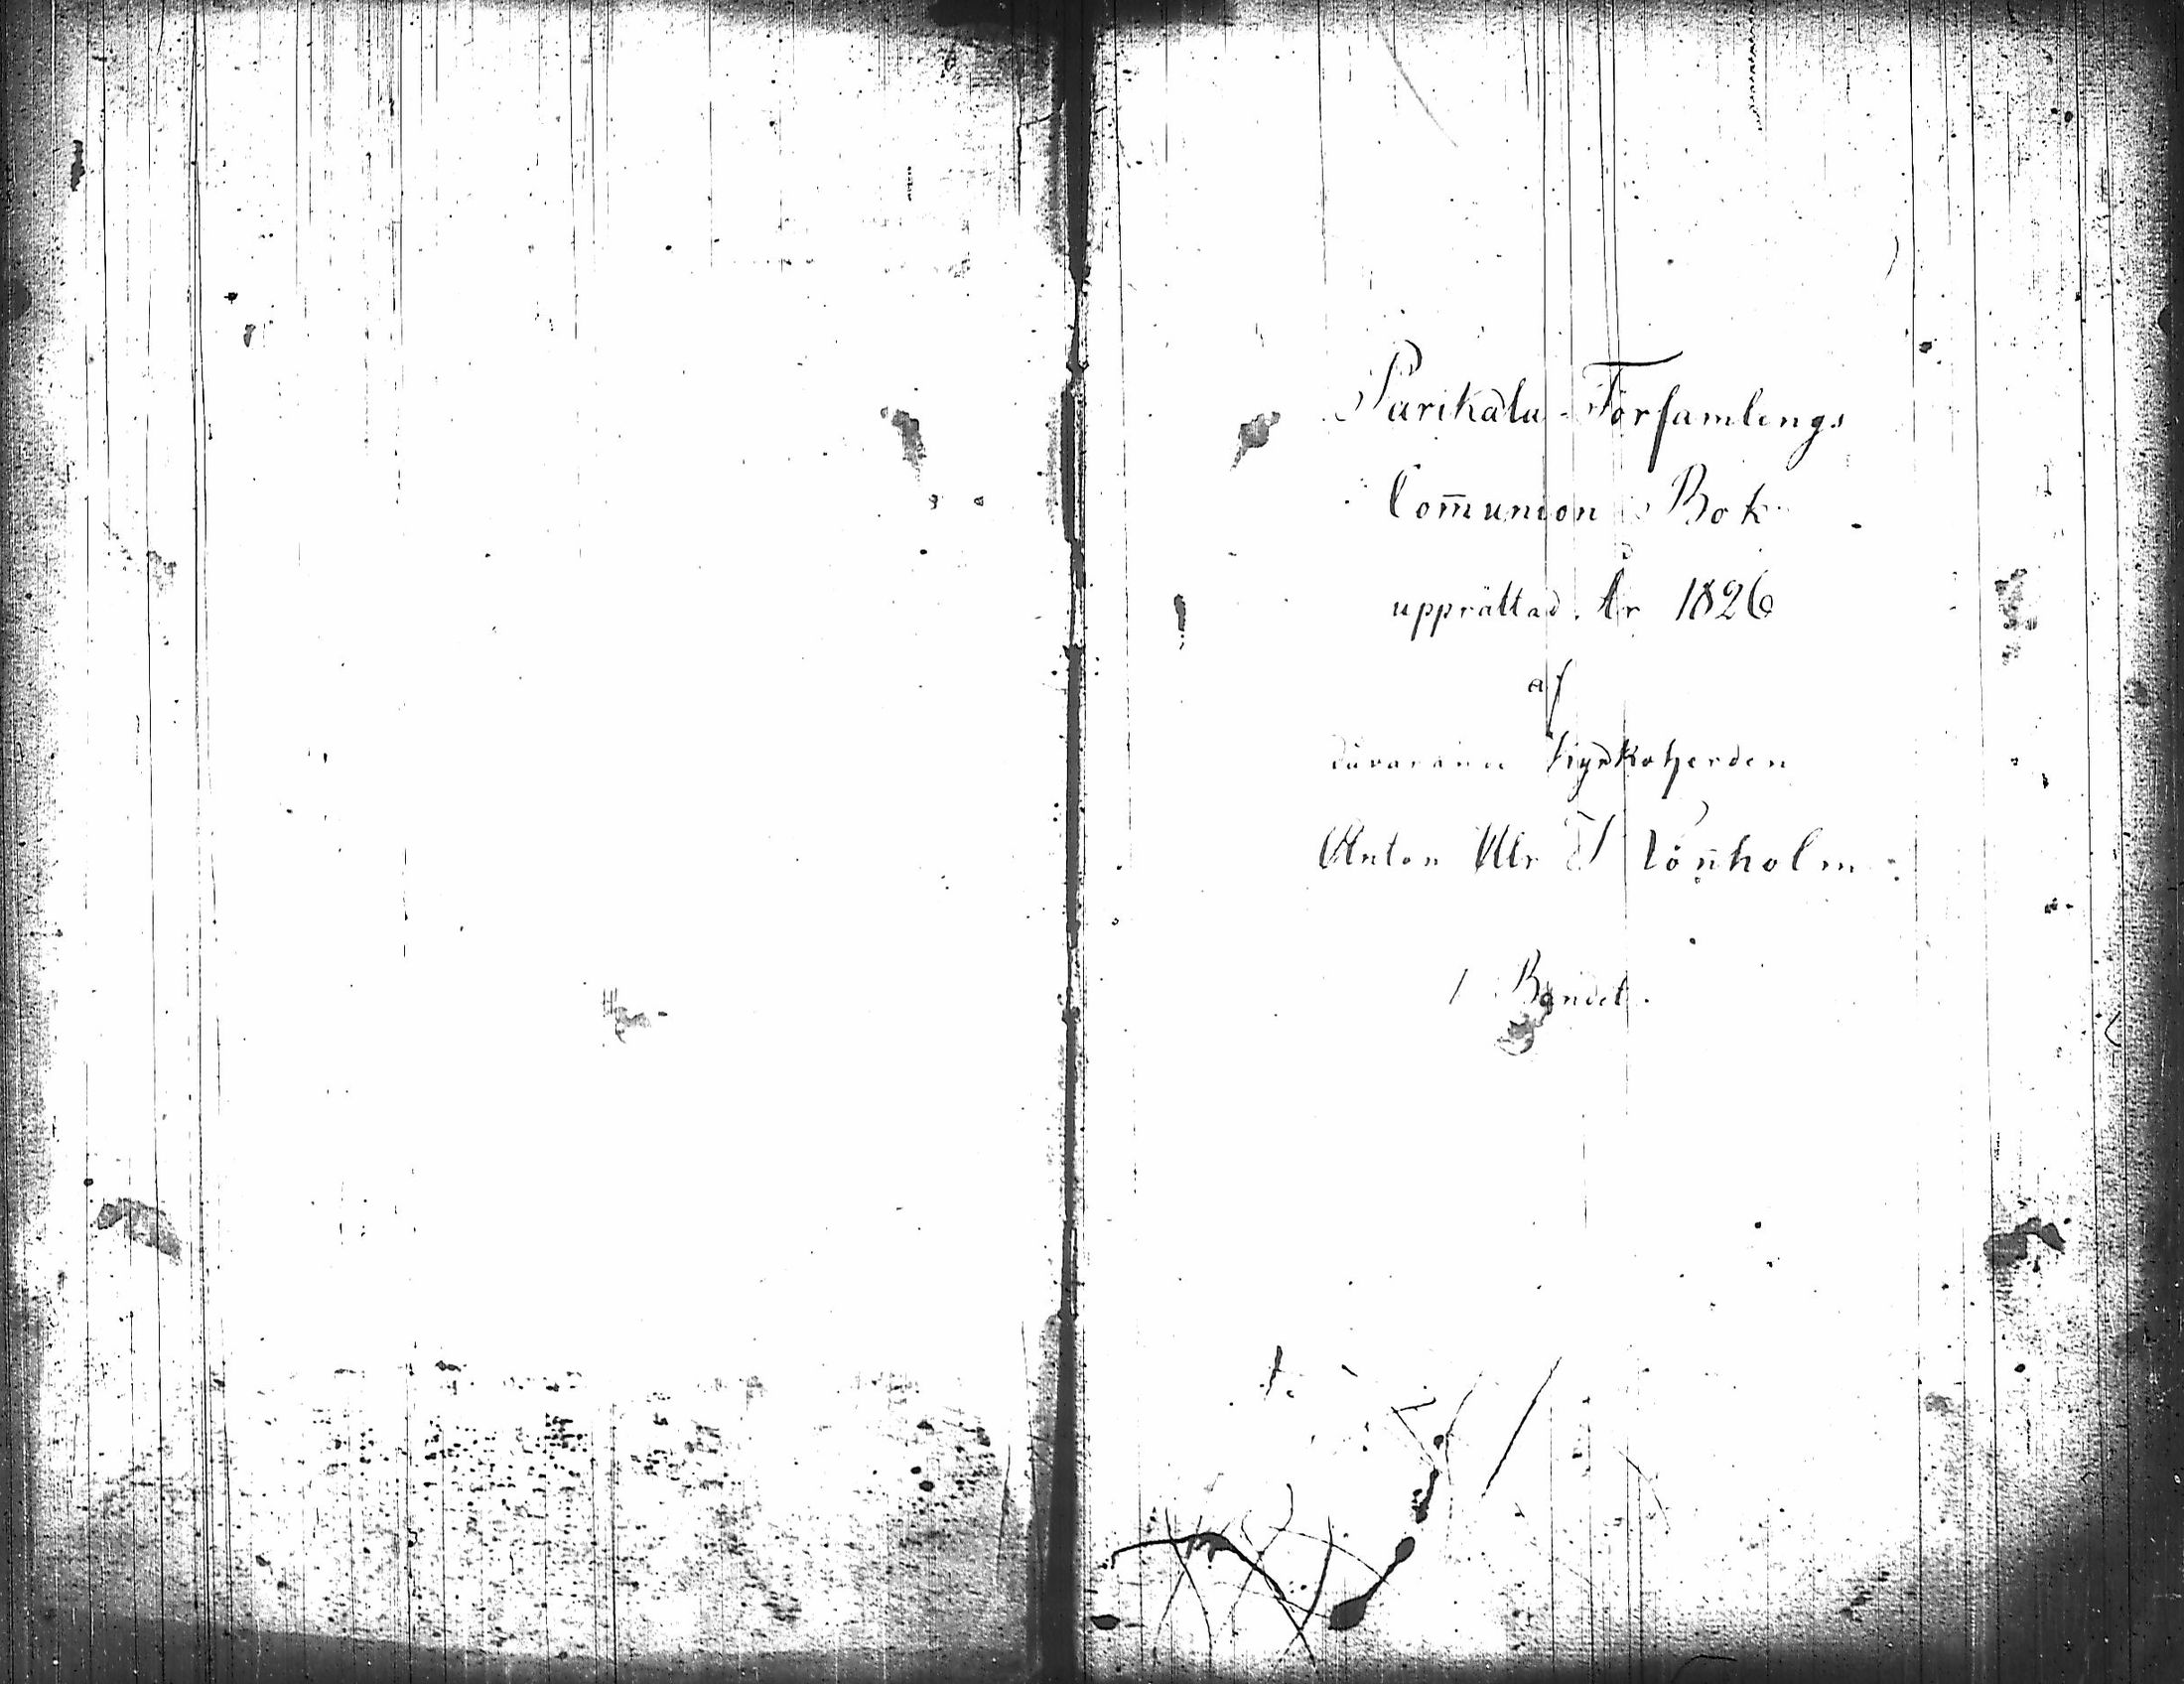 Parikala Församlings
Com̄union Bok
upprättad År 1826
af
dåvarande Kyrkoherden
Anton Ulr
1 Bandet.